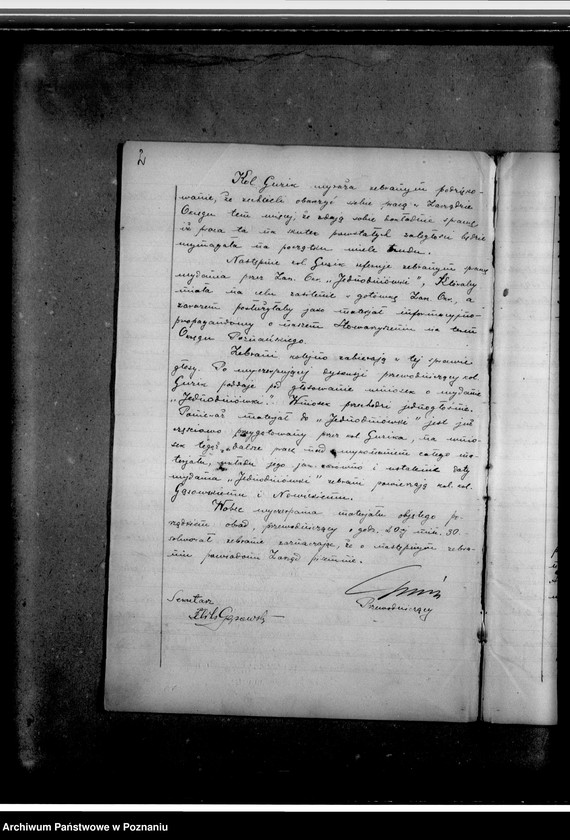 2
Kol. Gurik wyraża zebranym podzięko-
wanie, że zechcieli obarczyć siebie pracą w Zarządzie
Okręgu tem więcej, że zdają sobie dokładnie sprawę
iż praca ta na skutek powstałych zaległości będzie
wymagała na początku wiele trudu.
Następnie kol. Gurik referuje zebranym sprawę
wydania przez Zarz. Okr. „Jednodniówki”, któraby
miała na celu zasilenie w gotówkę Zarz. Okr., a
zarazem posłużyłaby jako materjał informacyjno-
propagandowy o naszem Stowarzyszeniu na teren
Okręgu Poznańskiego.
Zebrani kolejno zabierają w tej sprawie
głosy. Po wyczerpującej dyskusji przewodniczący kol.
Gurik poddaje pod głosowanie wniosek o wydanie
„Jednodniówki”. Wniosek przechodzi jednogłośnie.
Ponieważ materjał do „Jednodniówki” jest już
częściowo przygotowany przez kol. Gurika, na wnio-
sek tegoż dalsze prace nad wykończeniem całego ma-
terjału, układu jego jak również i ustalenie daty
wydania „Jednodniówki” zebrani powierzają kol. kol.
Gąsowskiemu i Nowickiemu.
Wobec wyczerpania materjału objętego po-
rządkiem obrad, przewodniczący o godz. 20ej min. 30.
zebranie zaznaczając, że o następnym zebra-
niu powiadomi Zarząd pisemnie.
Sekretarz
Przewodniczący
Gąsowski
Archiwum Państwowe w Poznaniu